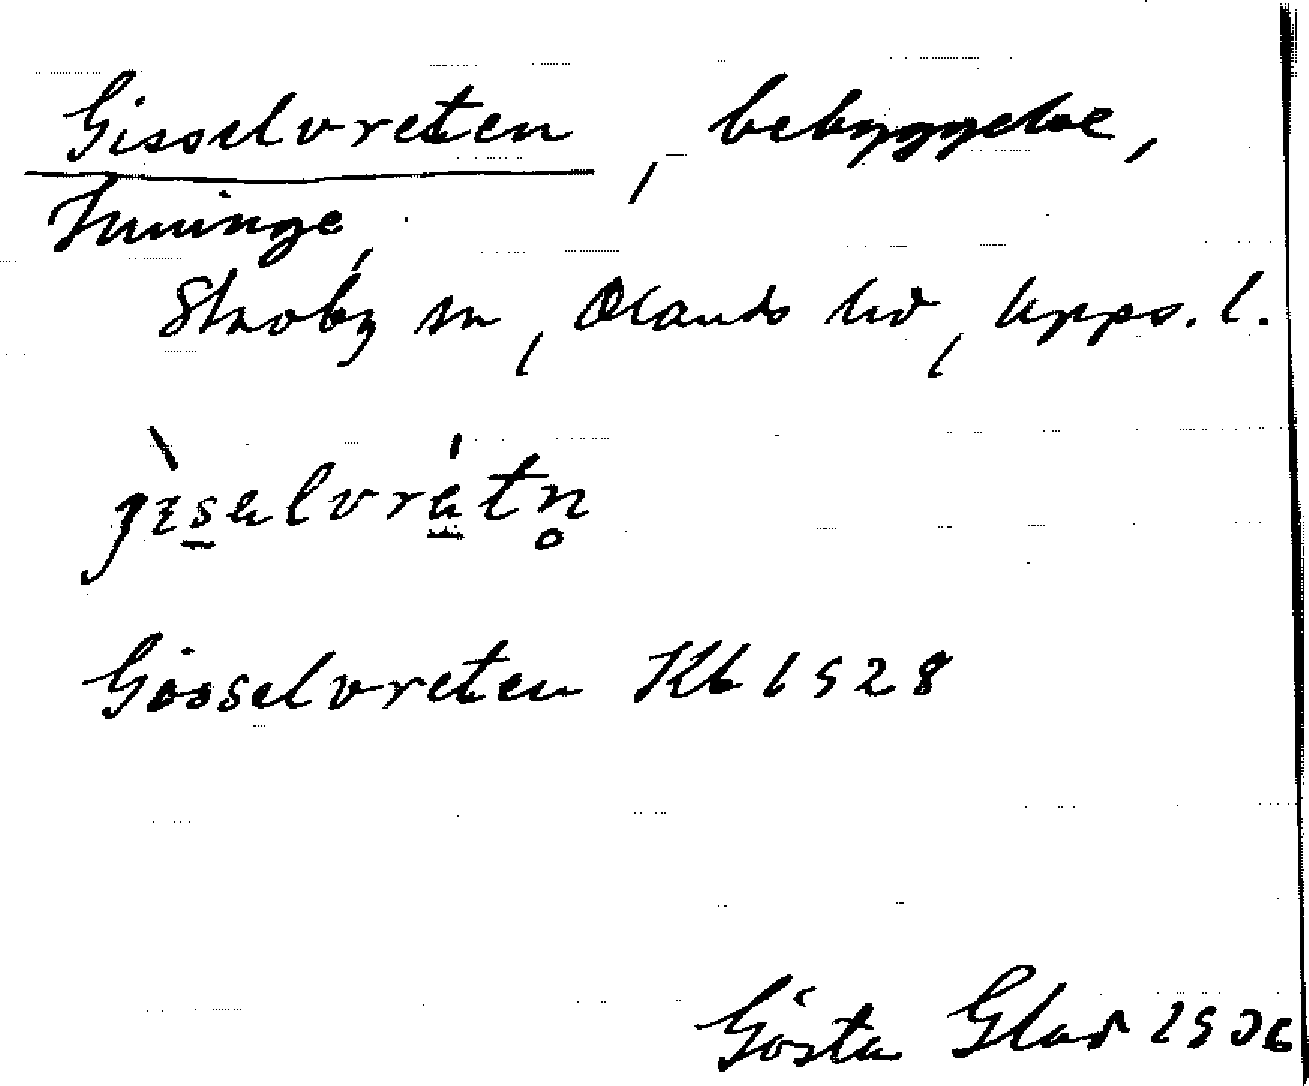 Gisselvreten, bebyggelse,
Inninge,
Stavby sn, Olands hd, Upps. l.
Gisselvreten Kb 1928
Gösta Glad 1936